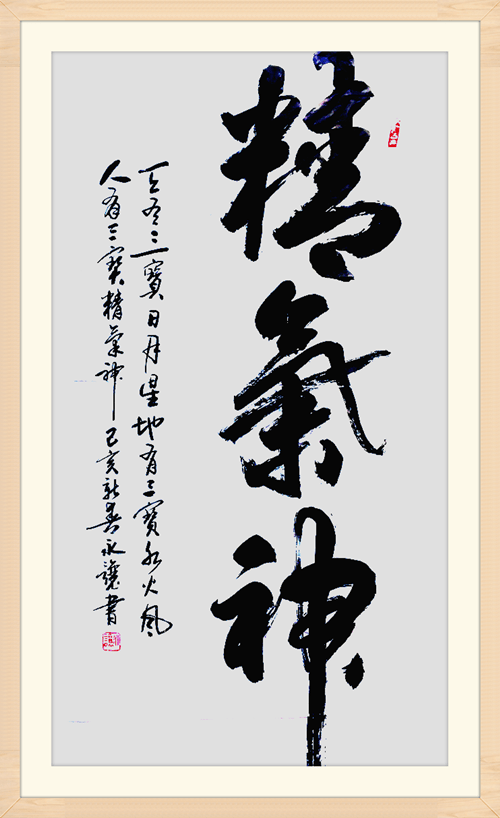 精氣神
天有三寶日月星地有三寶水火風
人有三寶精氣神 己亥新春永讓書